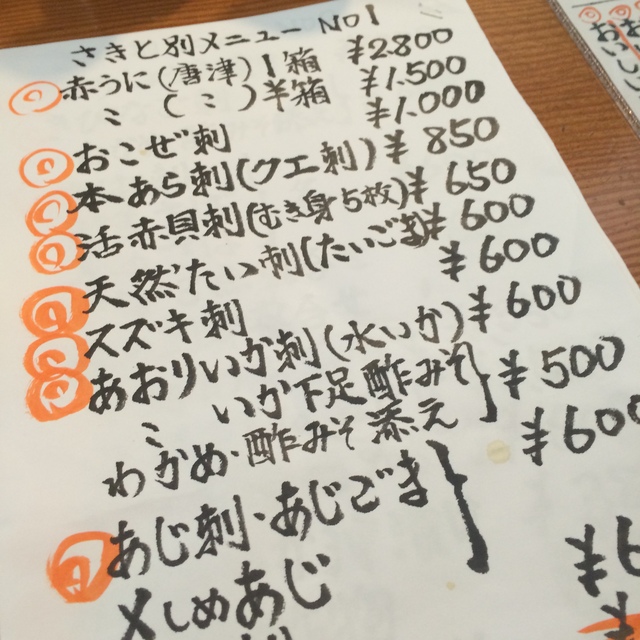 さきと別メニュー NO1
赤うに(唐津)1箱 ¥2800
〃(〃)半箱 ¥1.500
おこぜ刺 ¥1.000
本あら刺(クエ刺) ¥850
活赤貝刺(むき身5枚) ¥650
天然たい刺(たいごま) ¥600
スズキ刺 ¥600
あおりいか刺(水いか) ¥600
〃 いか下足酢みそ ¥500
わかめ・酢みそ添え
あじ刺・あじごま ¥600
〆しめあじ